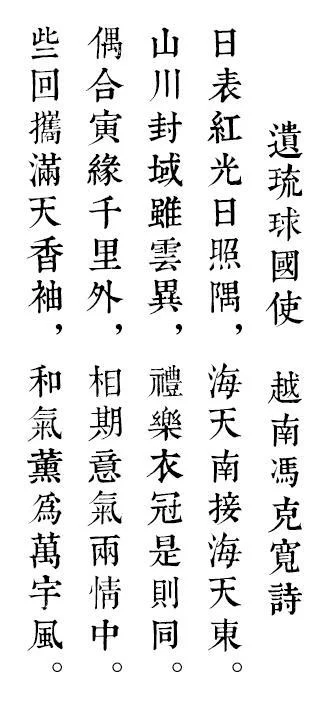 遺琉球國使　越南馮克寬詩
日表紅光日照隅，海天南接海天東。
山川封域雖雲異，禮樂衣冠是則同。
偶合寅緣千里外，相期意氣兩情中。
些回攜滿天香袖，和氣薰為萬宇風。